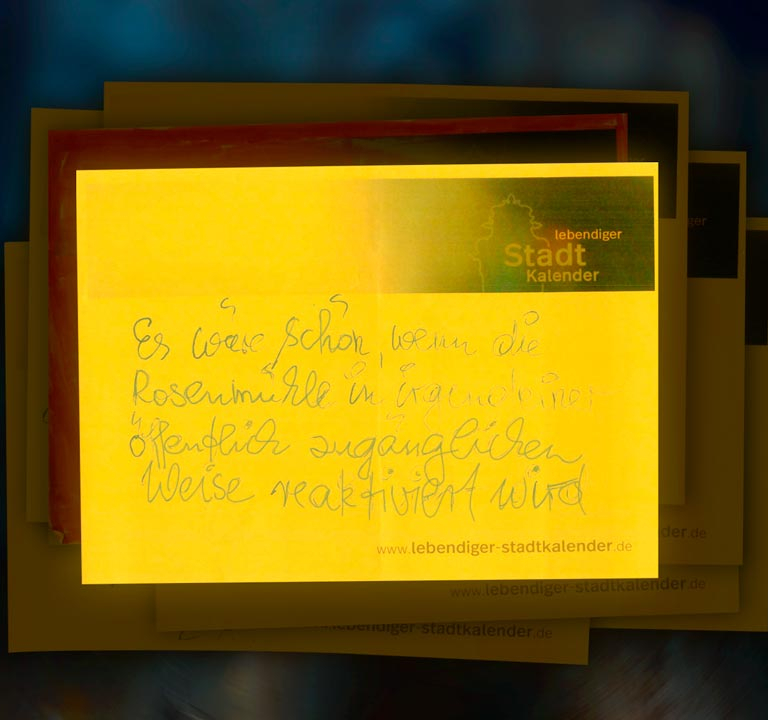 lebendiger
Stadt
Kalender
Es wäre schön, wenn die
Rosenmühle in irgendeiner
öffentlich zugänglichen
Weise reaktiviert wird
www.lebendiger-stadtkalender.de
.de
www.lebendiger-stadtkalender.de
lebendiger-stadtkalender.de